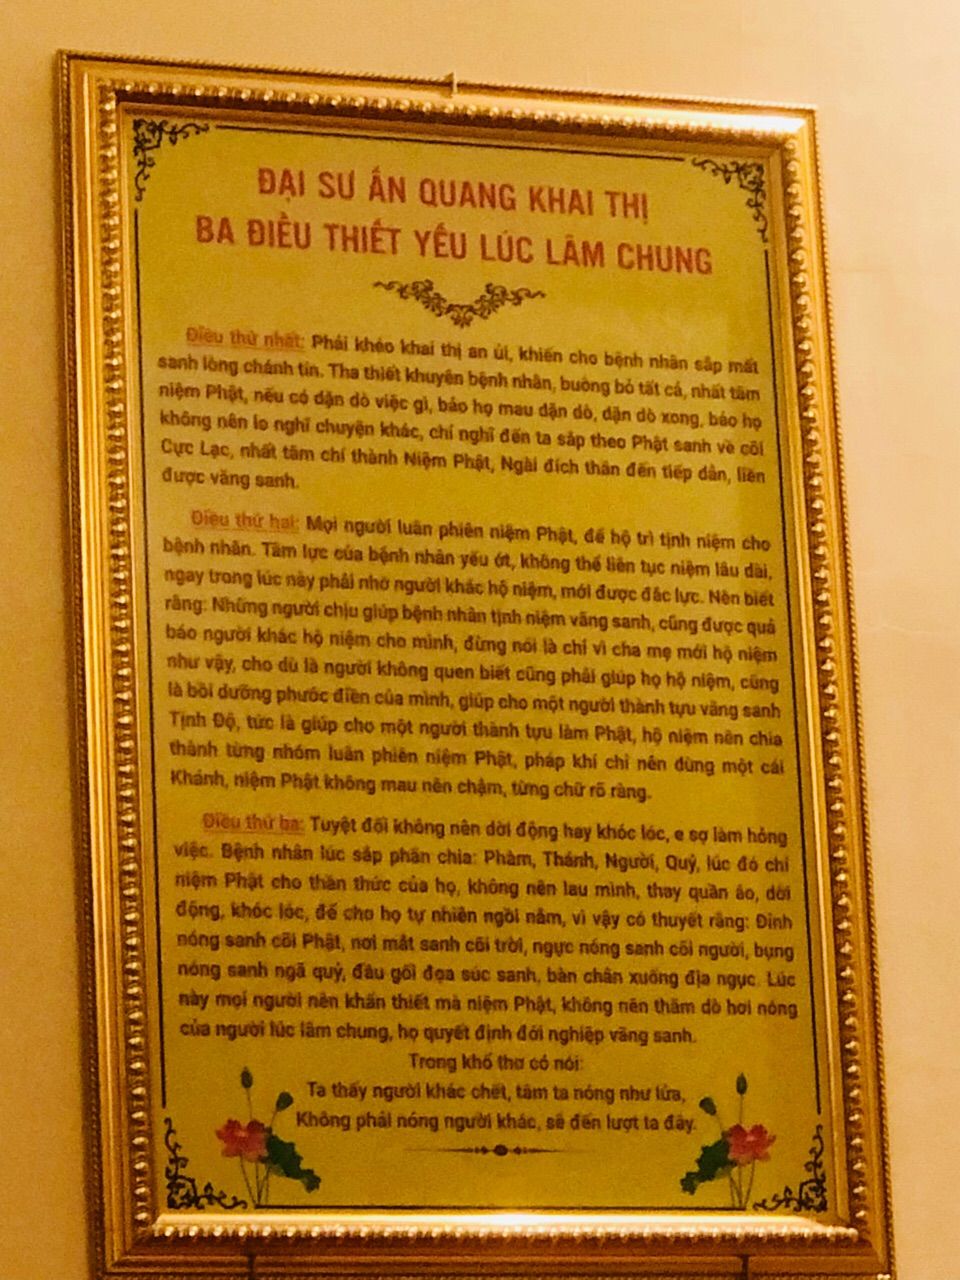 ĐẠI SƯ ẤN QUANG KHAI THỊ
BA ĐIỀU THIẾT YẾU LÚC LÂM CHUNG
Điều thứ nhất: Phải khéo khai thị an ủi, khiến cho bệnh nhân sắp mất
sanh lòng chánh tín. Tha thiết khuyên bệnh nhân, buông bỏ tất cả, nhất tâm
niệm Phật, nếu có dặn dò việc gì, bảo họ mau dặn dò, dặn dò xong, bảo họ
không nên lo nghĩ chuyện khác, chỉ nghĩ đến ta sắp theo Phật sanh về cõi
Cực Lạc, nhất tâm chí thành Niệm Phật, Ngài đích thân đến tiếp dẫn, liền
được vãng sanh.
Điều thứ hai: Mọi người luân phiên niệm Phật, để hộ trì tịnh niệm cho
bệnh nhân. Tâm lực của bệnh nhân yếu ớt, không thể liên tục niệm lâu dài,
ngay trong lúc này phải nhờ người khác hộ niệm, mới được đắc lực. Nên biết
rằng: Những người chịu giúp bệnh nhân tịnh niệm vãng sanh, cũng được quả
báo người khác hộ niệm cho mình, đừng nói là chỉ vì cha mẹ mới hộ niệm
như vậy, cho dù là người không quen biết cũng phải giúp họ hộ niệm, cũng
là bồi dưỡng phước điền của mình, giúp cho một người thành tựu vãng sanh
Tịnh Độ, tức là giúp cho một người thành tựu làm Phật, hộ niệm nên chia
thành từng nhóm luân phiên niệm Phật, pháp khí chỉ nên dùng một cái
Khánh, niệm Phật không mau nên chậm, từng chữ rõ ràng.
Điều thứ ba: Tuyệt đối không nên dời động hay khóc lóc, e sợ làm hỏng
việc. Bệnh nhân lúc sắp phân chia: Phàm, Thánh, Người, Quỷ, lúc đó chỉ
niệm Phật cho thần thức của họ, không nên lau mình, thay quần áo, dời
động, khóc lóc, để cho họ tự nhiên ngồi nằm, vì vậy có thuyết rằng: Đỉnh
nóng sanh cõi Phật, nơi mắt sanh cõi trời, ngực nóng sanh cõi người, bụng
nóng sanh ngã quỷ, đầu gối đọa súc sanh, bàn chân xuống địa ngục. Lúc
này mọi người nên khẩn thiết mà niệm Phật, không nên thăm dò hơi nóng
của người lúc lâm chung, họ quyết định đới nghiệp vãng sanh.
Trong khổ thơ có nói:
Ta thấy người khác chết, tâm ta nóng như lửa,
Không phải nóng người khác, sẽ đến lượt ta đây.